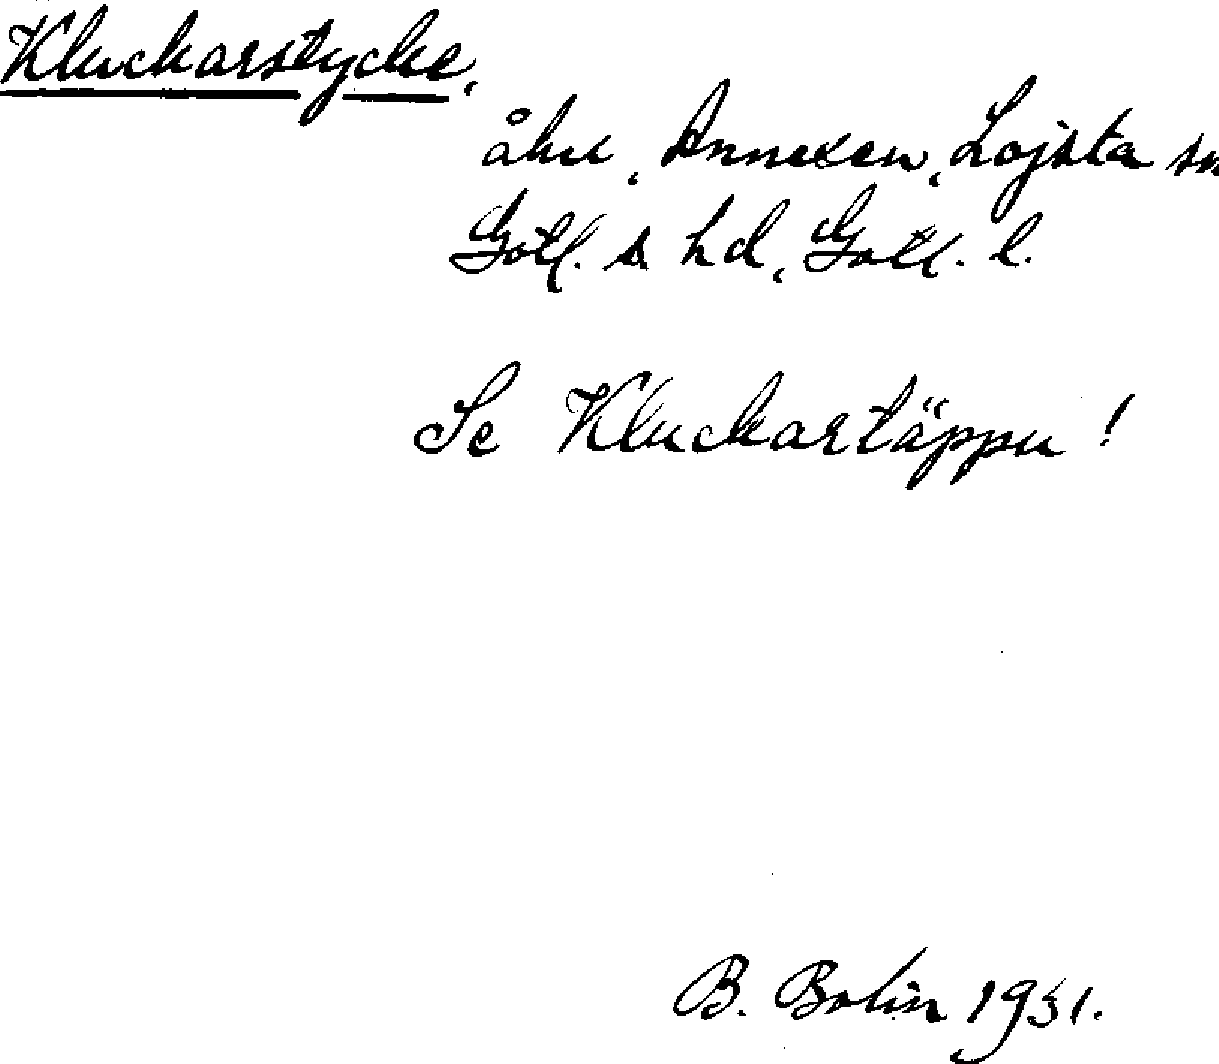 Kluckarstycke,
åker, Annexen, Lojsta sn
Gotl. s. hd, Gotl. l.
Se Kluckartäppu!
B. Bolin 1931.